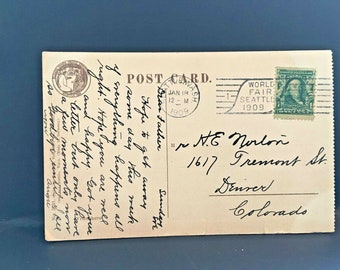 POST CARD.
WASH.
JAN 18
12-M
1909
WORLD'S
FAIR
SEATTLE
1909
Sunday
Dear Father
Hope to get away
some day this week
if everything happens all
right. Hope you are well
and happy. Got your
letter but only have
a few moments now
so Goodbye
H.E. Norton
1617 Tremont St.
Denver
Colorado